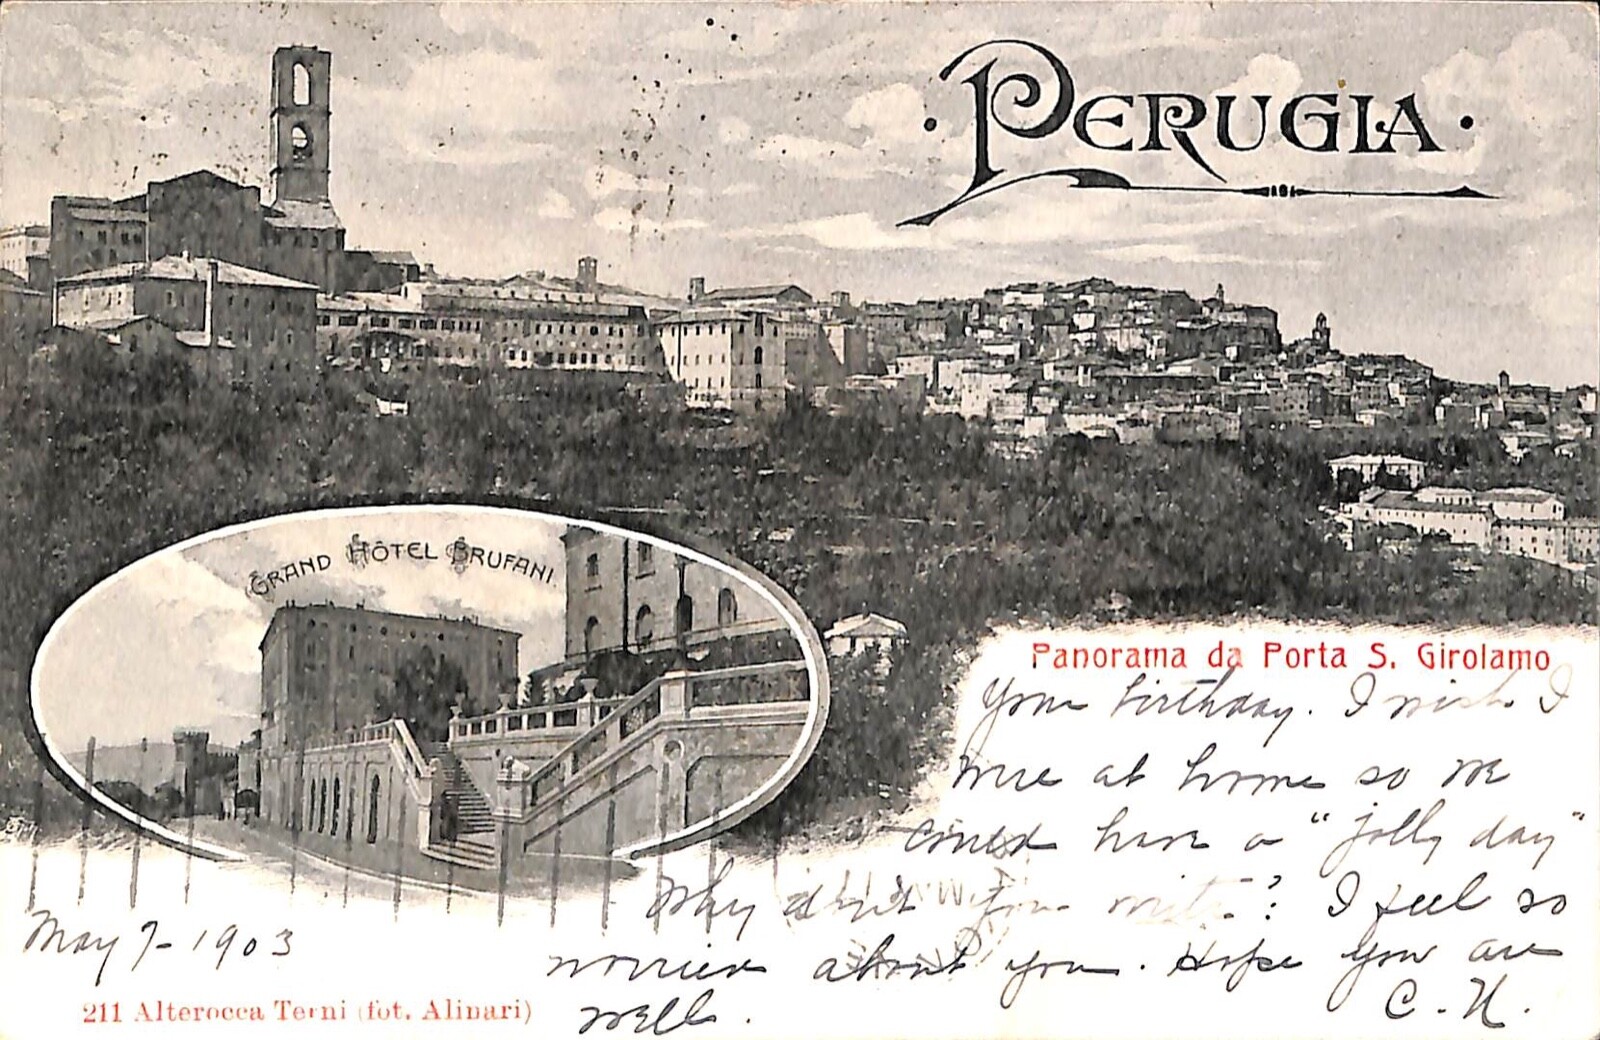 · PERUGIA ·
GRAND HÔTEL BRUFANI
Panorama da Porta S. Girolamo
Your birthday. I wish I
were at home so we
could have a "jolly day"
Why didn't you write? I feel so
worried about you. Hope you are
well.
C. H.
May 7 - 1903
211 Alterocca Terni (fot. Alinari)